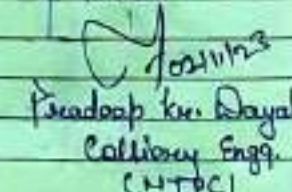 02/11/23
Pradeep Kr. Dayal
Colliery Engg.
(NTPC)